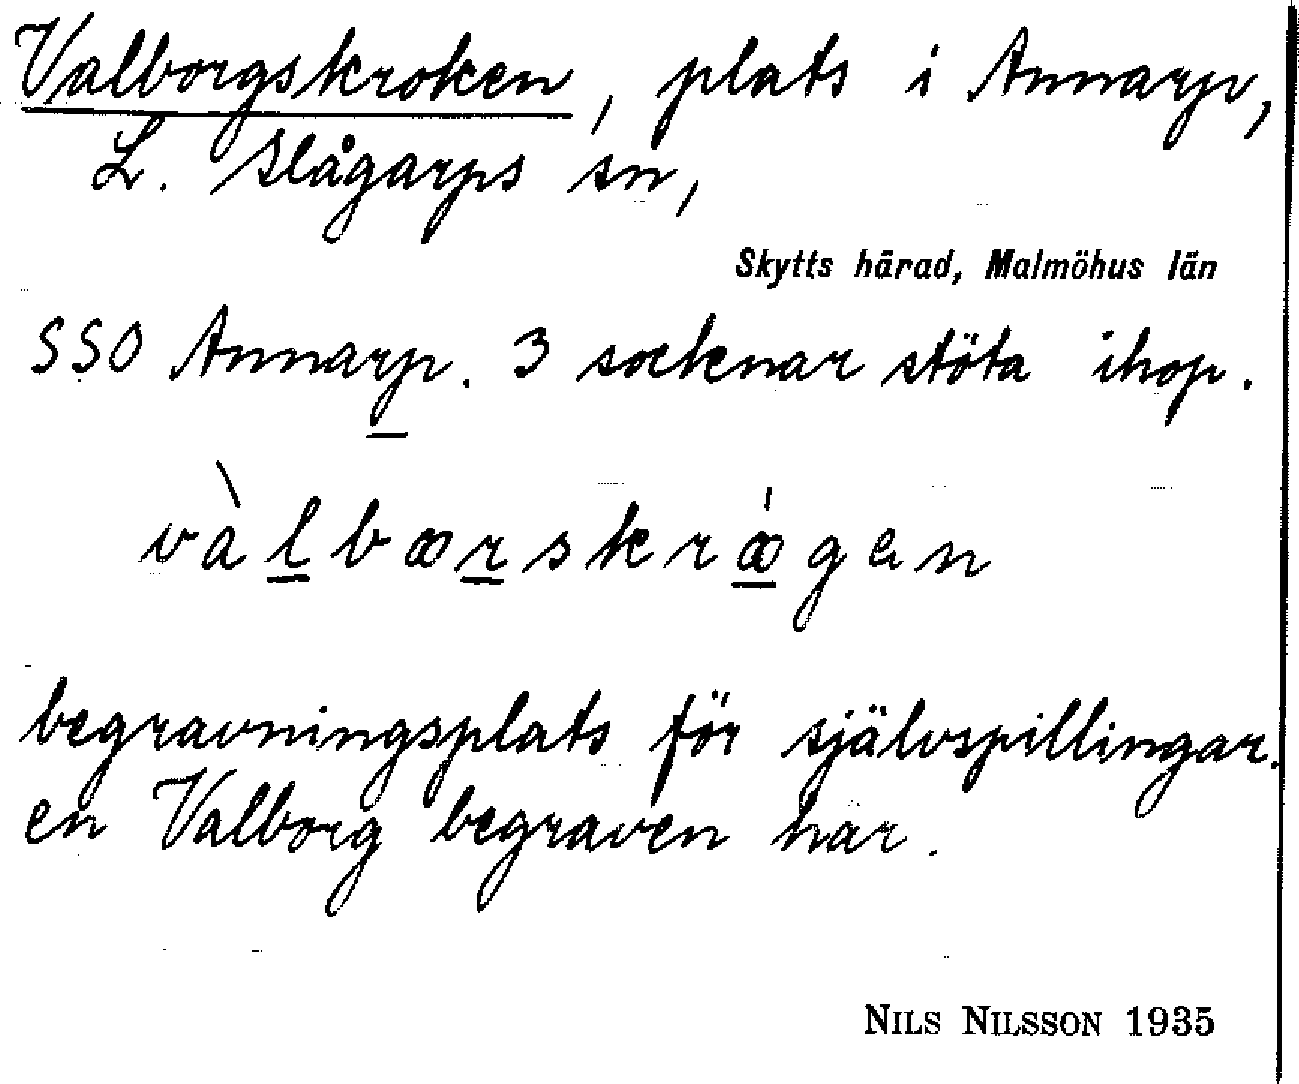 Valborgskroken, plats i Annarp,
L. Slågarps sn,
Skytts härad, Malmöhus län
SSO Annarp. 3 socknar stöta ihop.
vàlbœrskrœ́gen
begravningsplats för självspillingar.
en Valborg begraven här.
NILS NILSSON 1935